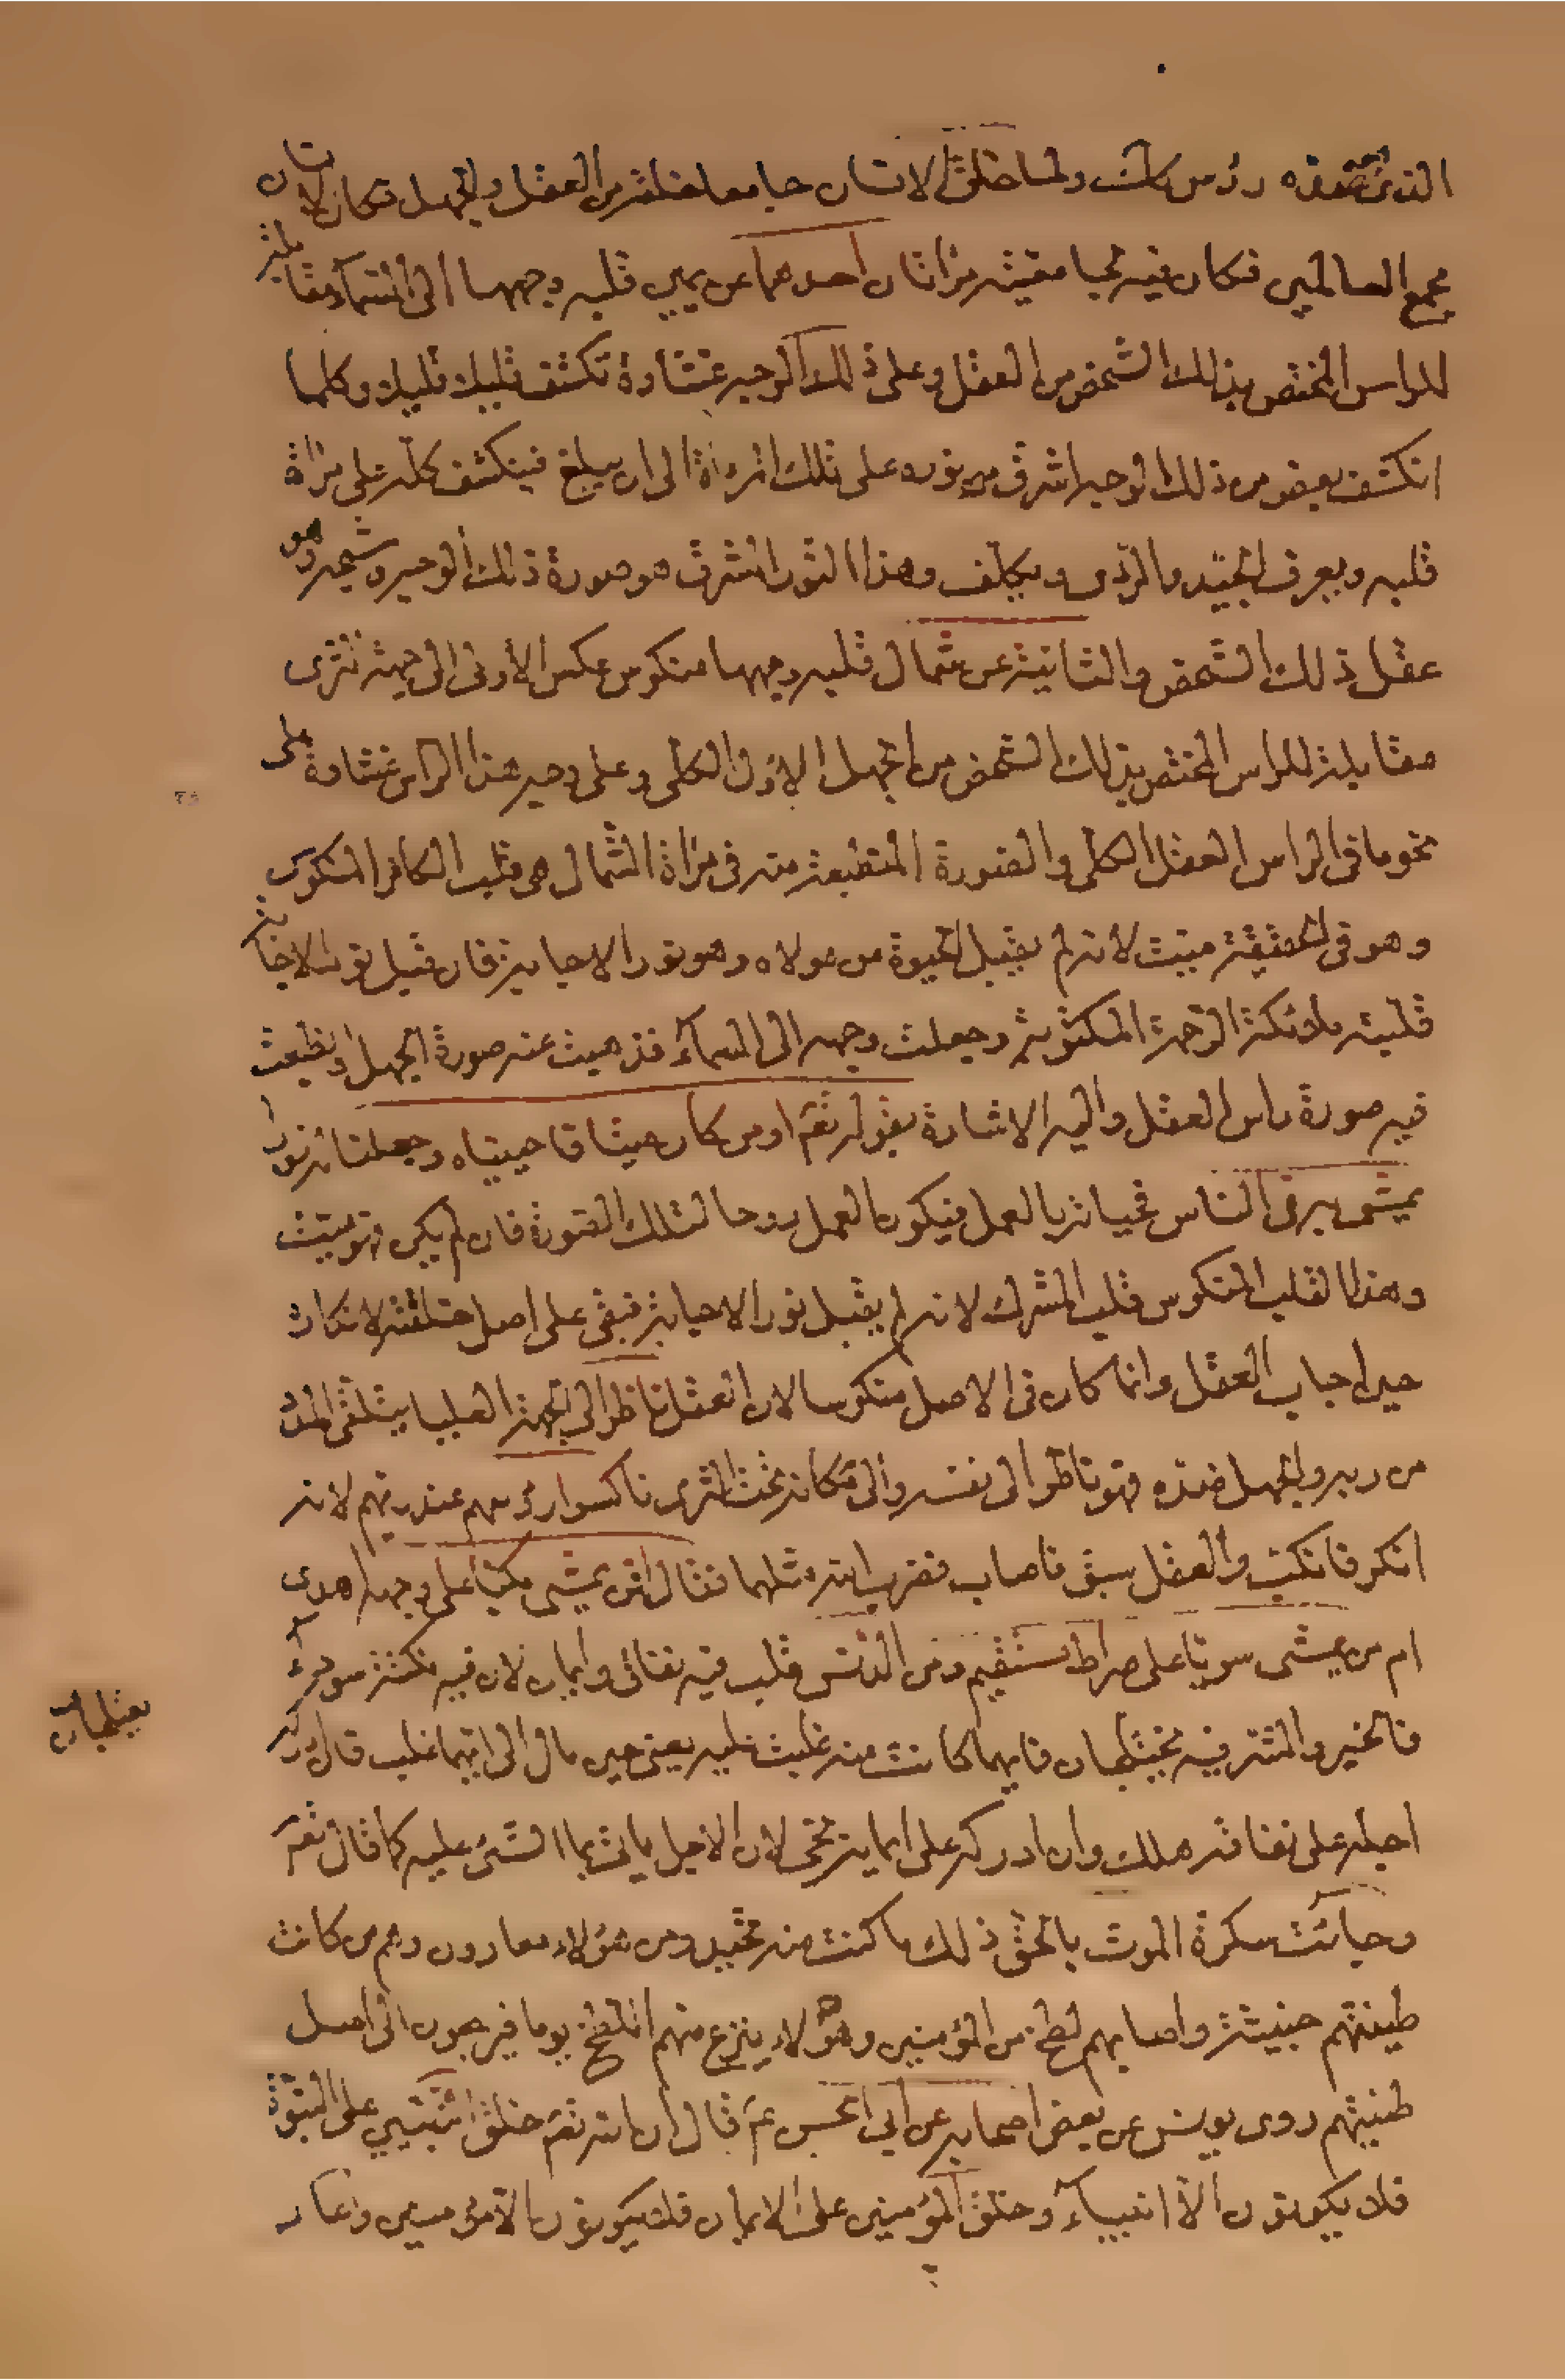 الذي هو ضده رؤس كذلك ولما خلق الانسان جامعا خلقه من العقل والجهل فكان الانسان
مجمع العالمين فكان فيه لجامعيته مراتان احدهما عن يمين قلبه وجهها الى السماء مقابلة
للراس المختص بذلك الشخص من العقل وعلى ذلك الوجه غشاوة تكشف قليلا قليلا وكلما
انكشف بعض من ذلك الوجه اشرق من نوره على تلك المرءاة الى ان يبلغ فينكشف كله على مراة
قلبه ويعرف الجيد والردى ويكلف وهذا النور المشرق هو صورة ذلك الوجه وشبحه وهو
عقل ذلك الشخص والثانية عن شمال قلبه وجهها منكوس عكس الأولى الى جهة الثرى
مقابلة للراس المختص بذلك الشخص من الجهل الاول الكلى وعلى وجه هذا الراس غشاوة على
نحو ما فى الراس العقل الكلى والصورة المنطبعة منه فى مراة الشمال هى قلب الكافر المنكوس
وهو فى الحقيقة ميت لأنه لم يقبل الحيوة من مولاه وهو نور الاجابة فان قبل نور الاجابة
قلبته ملائكة الرحمة المكتوبة وجعلت وجهه الى السماء فذهبت عنه صورة الجهل وانطبعت
فيه صورة راس العقل واليه الاشارة بقوله تعالى اومن كان ميتا فاحييناه وجعلنا له نورا
يمشى به فى الناس فحياته بالعمل فيكون العمل روحا لتلك الصورة فان لم يكن فهو ميت
وهذا القلب المنكوس قلب المشرك لانه لم يقبل نور الاجابة فبقى على اصل خلقته لانكاره
حين اجاب العقل وانما كان فى الاصل منكوسا لان العقل ناظر الى الجهة العليا يتلقى المدد
من ربه والجهل ضده فهو ناظر الى نفسه والى مكانه تحت الثرى ناكسوا رؤسهم عند ربهم لانه
انكر فانكب والعقل سبق فاصاب فضرب الله مثلهما فقال افمن يمشى مكبا على وجهه اهدى
ام من يمشى سويا على صراط مستقيم ومن الناس قلب فيه نفاق وايمان لان فيه نكتة سوداء
فالخير والشر فيه يختلجان فايهما كانت منه غلبت عليه يعنى حين مال الى ايهما غلب فان ادركه
اجله على نفاقه هلك وان ادركه على ايمانه نجى لان الاجل ياتى بما الشئ عليه كما قال تعالى
وجائت سكرة الموت بالحق ذلك ما كنت منه تحيد ومن هؤلاء معارون وهم من كانت
طينتهم خبيثة واصابهم لطخ من المؤمنين وهؤلاء ينزع منهم اللطخ يوما فيرجعون الى اصل
طينتهم روى يونس عن بعض اصحابه عن ابى الحسن ع قال ان الله تعالى خلق النبيين على النبوة
فلا يكونون الا انبياء وخلق المؤمنين على الايمان فلا يكونون الا مؤمنين واعار
يعتلجان